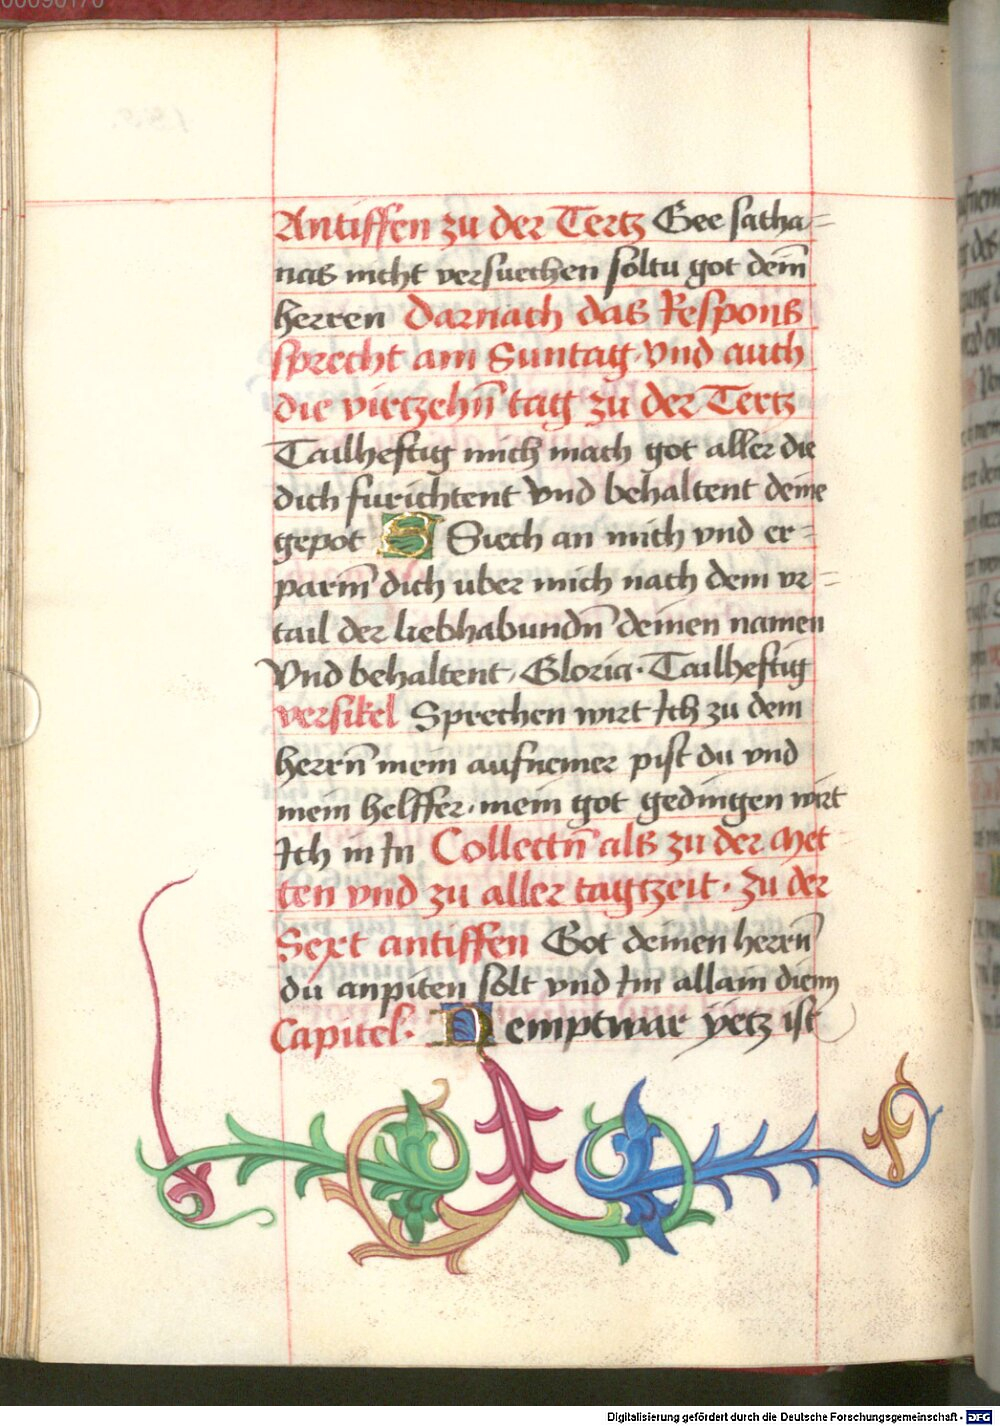 00090170
Antiffen zu der Tertz Gee satha=
nas nicht versuechen soltu got dein̄
herren Darnach das Respons
sprecht am Suntag vnd auch
die viertzehn̄ tag zu der Tertz
Tailheftig mich mach got aller die
dich furichtent vnd behaltent deine
gepot S Siech an mich vnd er=
parm̄ dich uber mich nach dem vr=
tail der liebhabundn̄ deinen namen
Vnd behaltent, Gloria. Tailheftig
versikel Sprechen wirt Ich zu dem
herrn̄ mein aufnemer pist du vnd
mein helffer, mein got gedingen wirt
Ich in In Collectn̄ als zu der Met
ten vnd zu aller tagtzeit. Zu der
Sext antiffen Got deinen herrn̄
du anpiten solt vnd Im allain dienn
Capitel. Nemptwar yetz ist
Digitalisierung gefördert durch die Deutsche Forschungsgemeinschaft - DFG